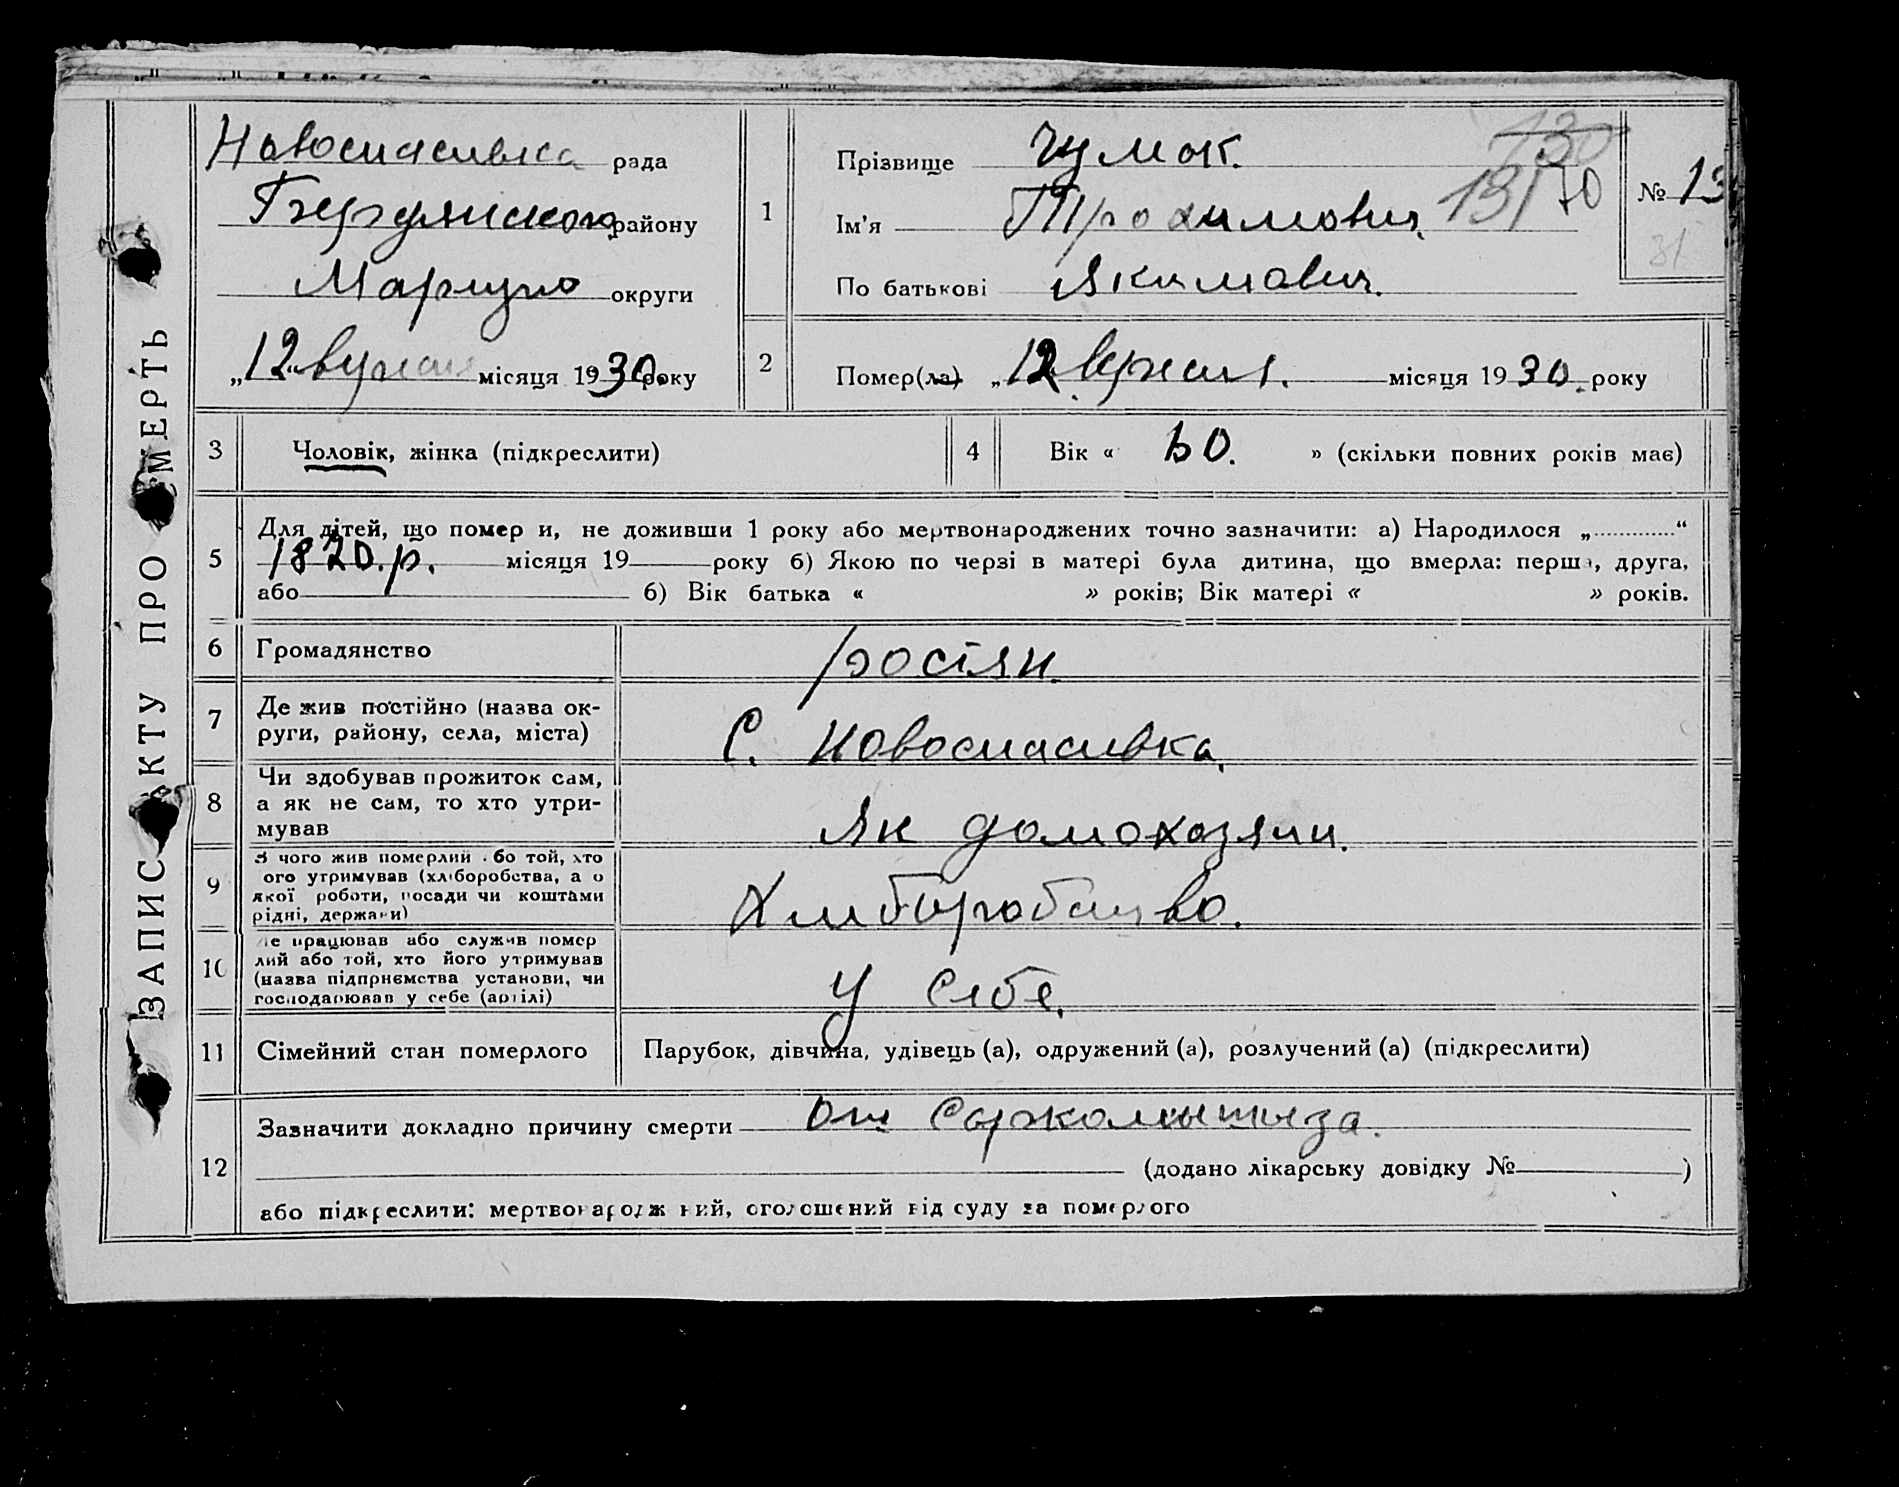 ЗАПИС АКТУ ПРО СМЕРТЬ
Новоспасивка рада
Бердянского району
Мариупо округи
„12" вересня місяця 1930 року
1
Прізвище Чумак.
Ім'я Трохимович
По батькові Якимович.
130
131 70
№ 13
31
2
Помер(ла) „12 вересня. місяця 1930. року
3 Чоловік, жінка (підкреслити)
4 Вік « 50. » (скільки повних років має)
5
Для дітей, що помер и, не доживши 1 року або мертвонароджених точно зазначити: а) Народилося „ “
1820.р. місяця 19 року б) Якою по черзі в матері була дитина, що вмерла: перша, друга,
або б) Вік батька « » років; Вік матері « » років.
6 Громадянство росіян.
7 Де жив постійно (назва ок-
руги, району, села, міста)
С. Новоспасивка.
8 Чи здобував прожиток сам,
а як не сам, то хто утри-
мував
Як домохазяин.
9 З чого жив померлий або той, хто
ого утримував (хліборобства, а о
якої роботи, посади чи коштами
рідні, держави)
Хлиборобство.
10 Де працював або служив помер
лий або той, хто його утримував
(назва підприємства установи, чи
господарював у себе (артілі)
у себе.
11 Сімейний стан померлого Парубок, дівчина, удівець (а), одружений (а), розлучений (а) (підкреслити)
12
Зазначити докладно причину смерти От
(додано лікарську довідку № )
або підкреслити: мертвонародж ний, оголошений від суду за померлого